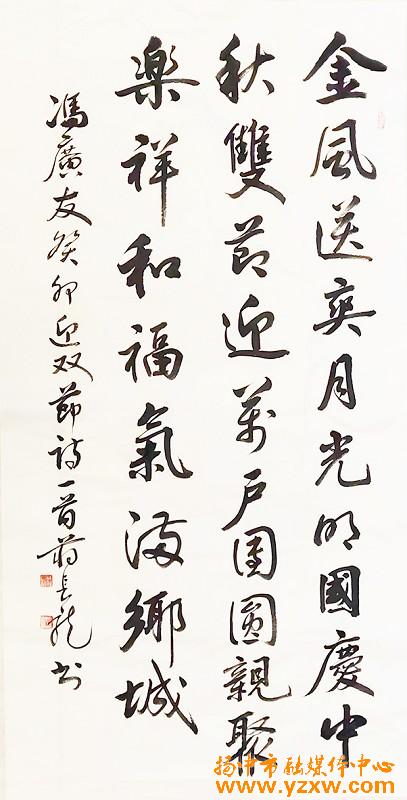 金風送爽月光明國慶中
秋雙節迎萬戶團圓親聚
樂祥和福氣滿鄉城
馮廣友癸卯迎双節詩一首蔣長龍书
扬中市融媒体中心
www.yzxw.com